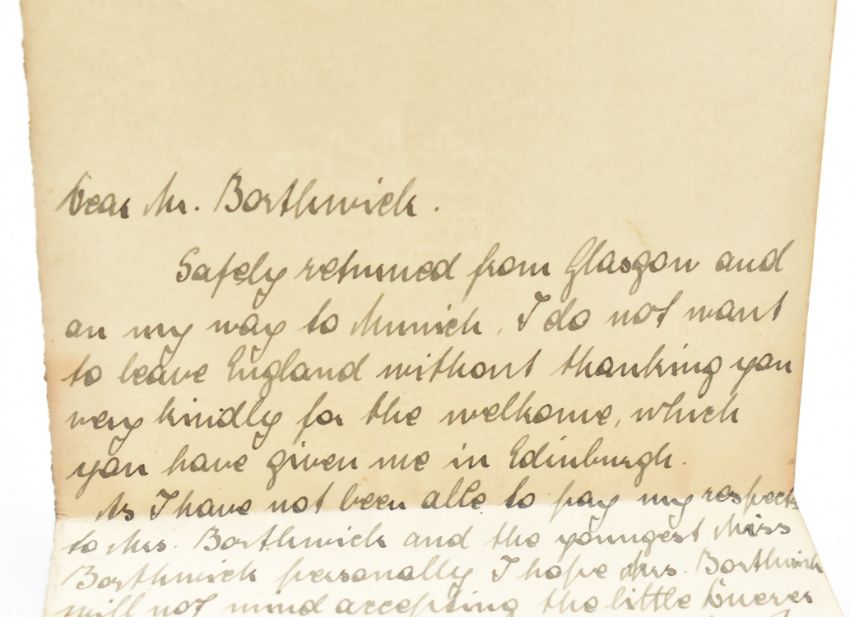 Dear Mr. Borthwick.
Safely returned from Glasgow and
on my way to Munich, I do not want
to leave England without thanking you
very kindly for the welkome, which
you have given me in Edinburgh.
As I have not been able to pay my respects
to Mrs. Borthwick and the youngest Miss
Borthwick personally I hope Mrs. Borthwick
will not mind accepting the little